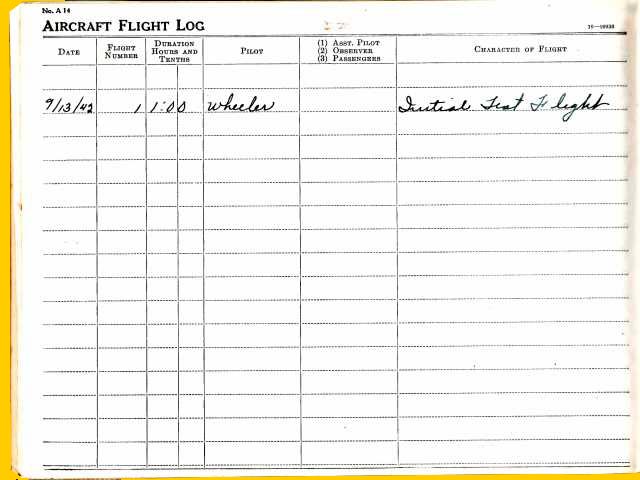 No. A 14
AIRCRAFT FLIGHT LOG
DATE FLIGHT NUMBER DURATION HOURS AND TENTHS PILOT (1) ASST. PILOT (2) OBSERVER (3) PASSENGERS CHARACTER OF FLIGHT
9/13/42 1 1:00 Wheeler Initial Test Flight